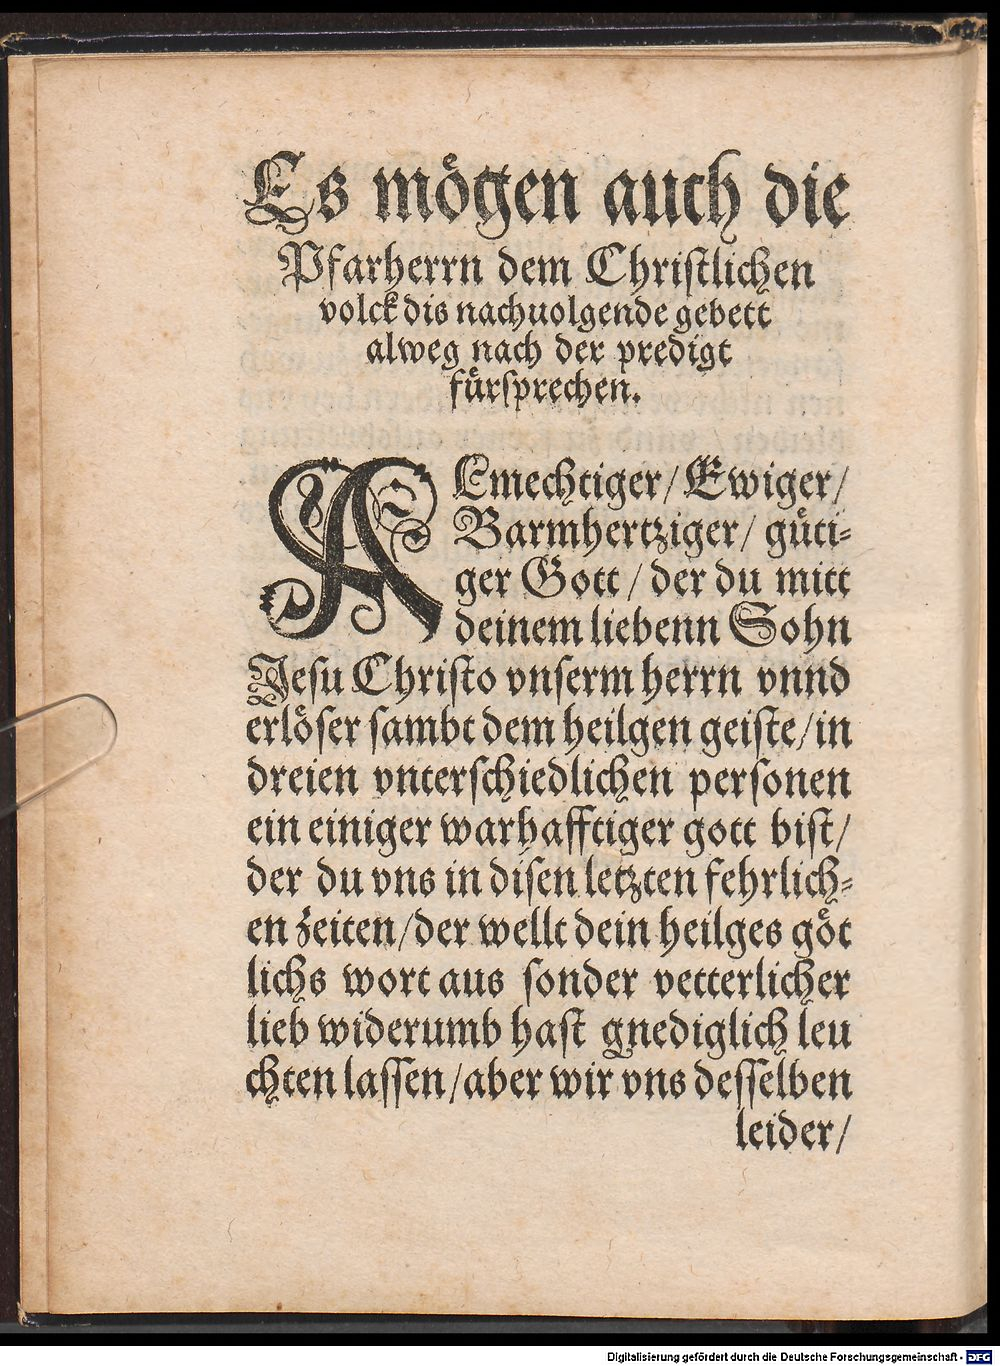 Es mögen auch die
Pfarherrn dem Christlichen
volck dis nachuolgende gebett
alweg nach der predigt
fürsprechen.
ALmechtiger/ Ewiger/
Barmhertziger/ güti-
ger Gott/ der du mitt
deinem liebenn Sohn
Jesu Christo vnserm herrn vnnd
erlöser sambt dem heilgen geiste/in
dreien vnterschiedlichen personen
ein einiger warhafftiger gott bist/
der du vns in disen letzten fehrlich-
en zeiten/der wellt dein heilges göt
lichs wort aus sonder vetterlicher
lieb widerumb hast gnediglich leu
chten lassen/aber wir vns desselben
leider/
Digitalisierung gefördert durch die Deutsche Forschungsgemeinschaft - DFG